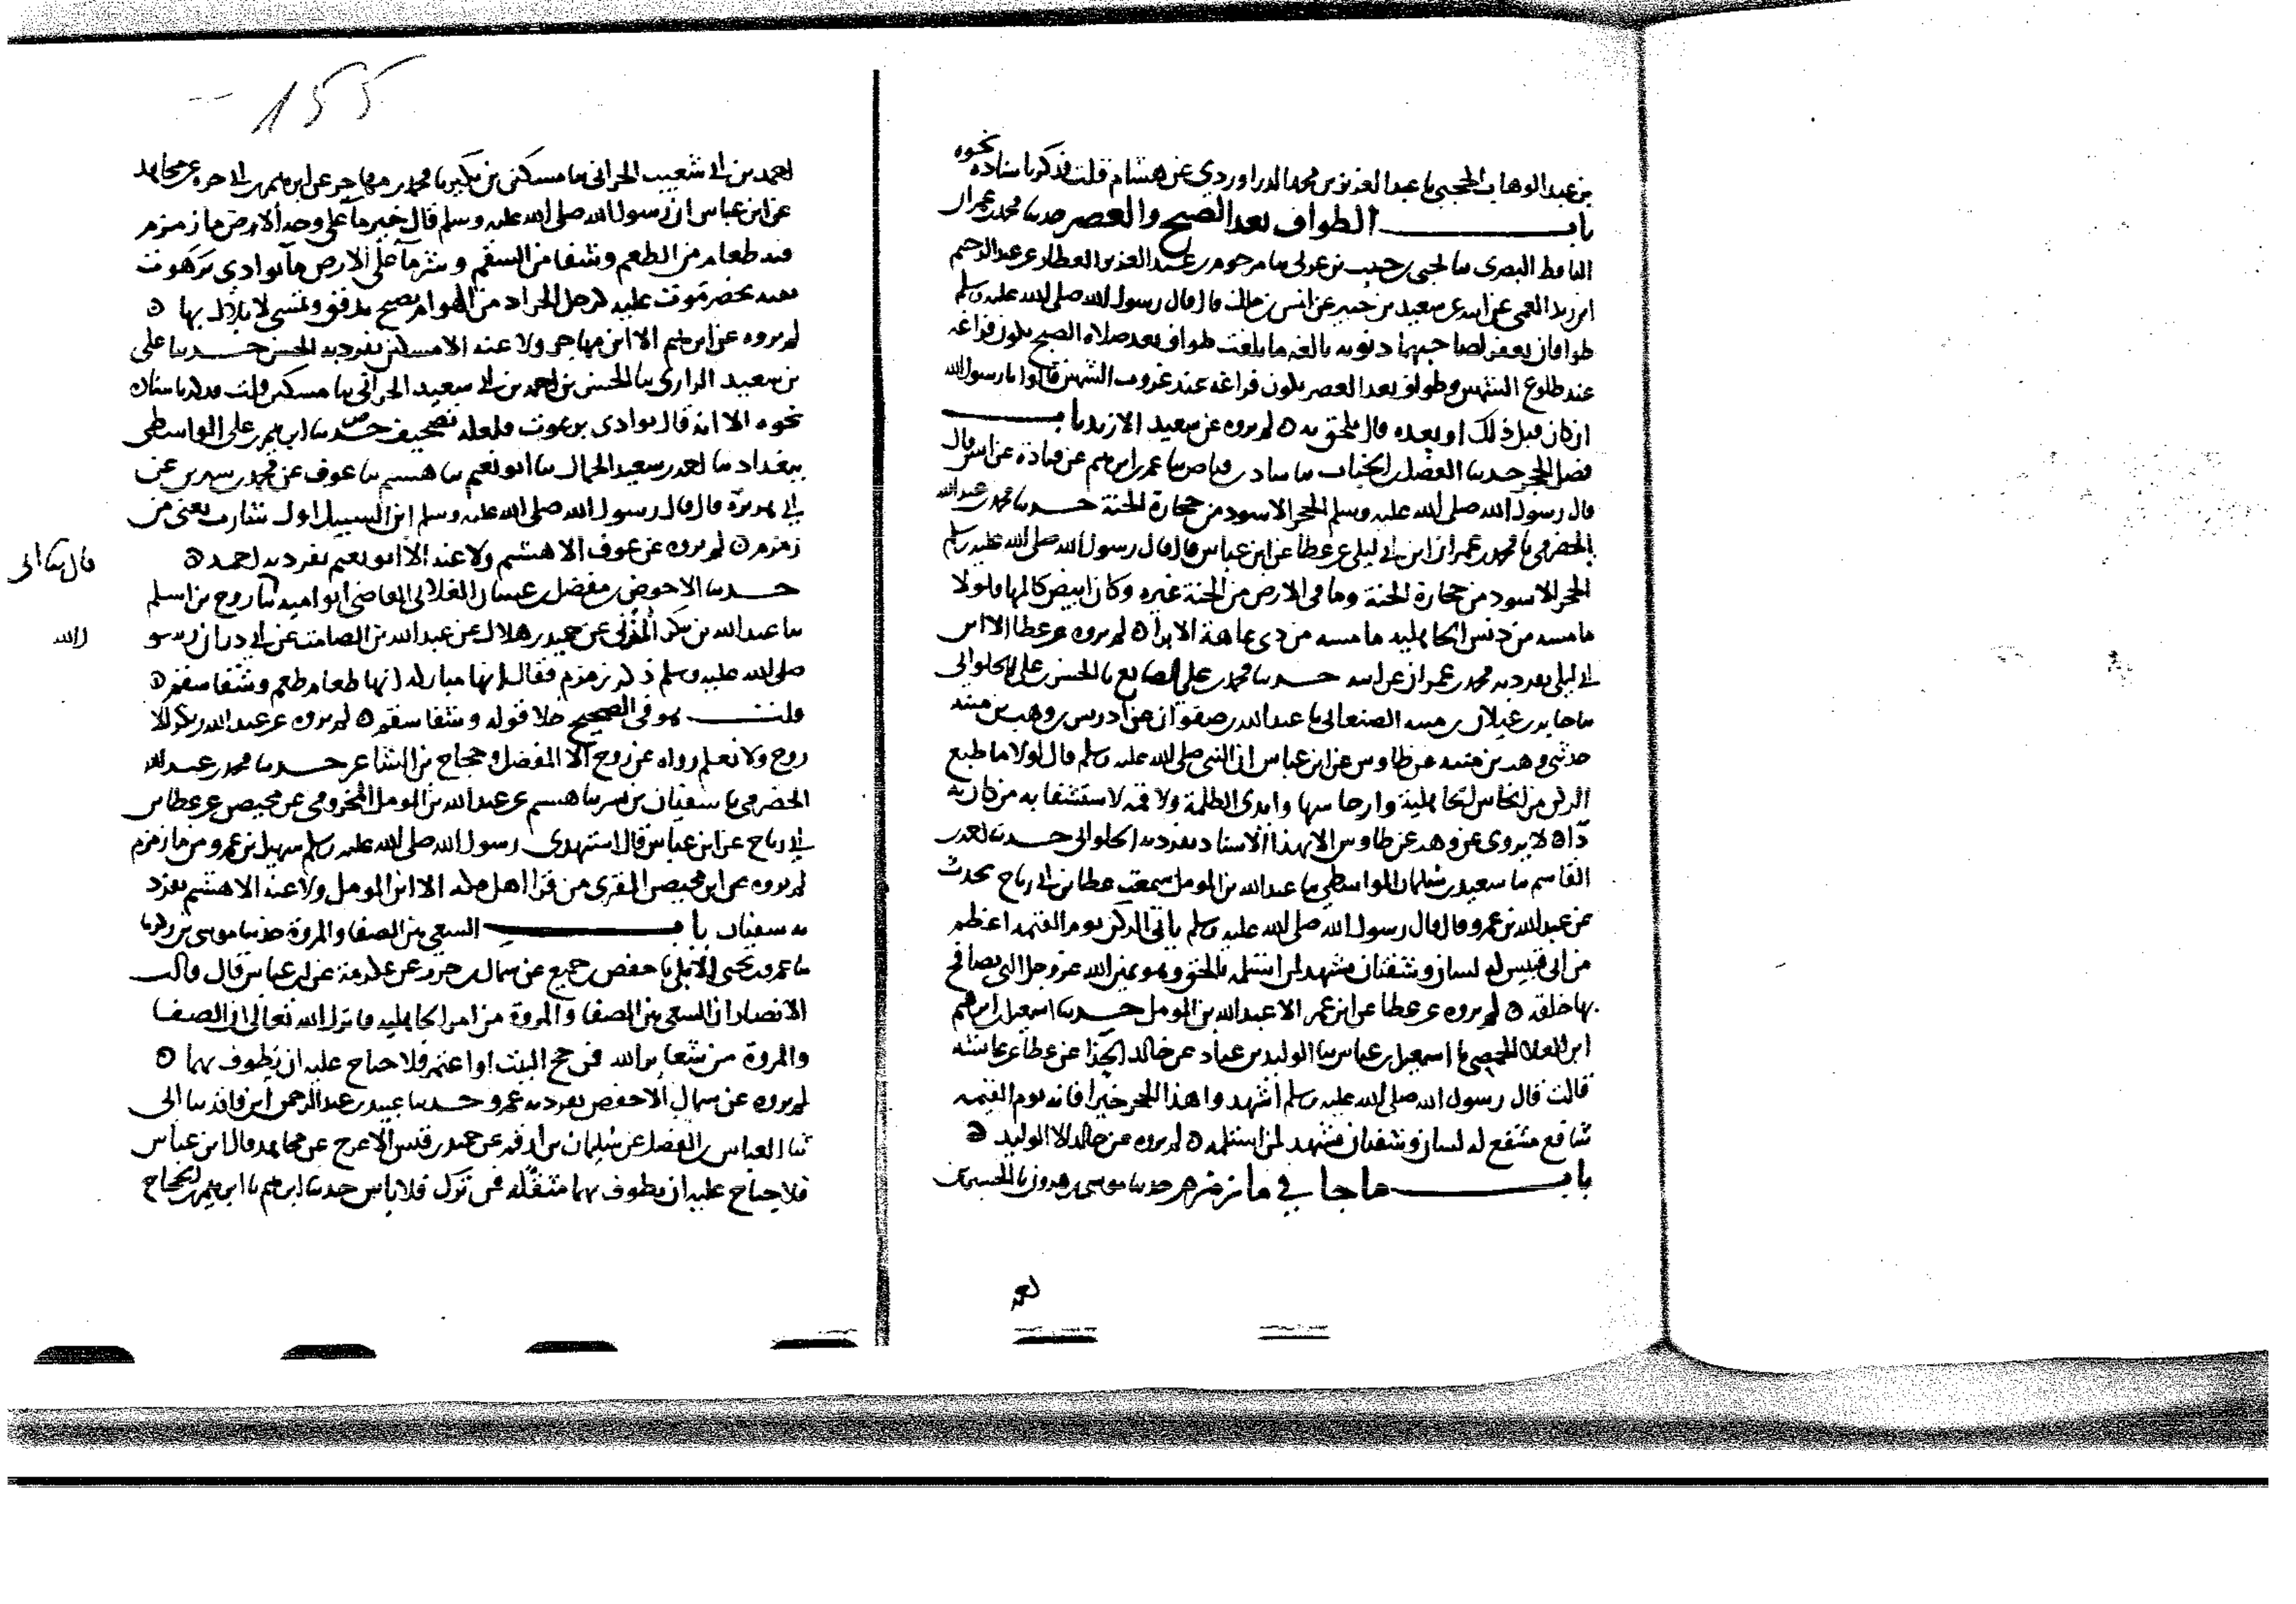 بن عبد الوهاب الحجبي نا عبد العزيز بن محمد الدراوردي عن هشام قلت فذكر باسناده نحوه
باب الطواف بعد الصبح والعصر حدثنا محمد بن عمران
الناقط البصرى نا يحيى بن حبيب بن عربي نا مرحوم بن عبد العزيز العطار عن عبد الرحيم
ابن زيد العمي عن ابيه عن سعيد بن جبير عن انس بن مالك قال قال رسول الله صلى الله عليه وسلم
طوافان يغفر لصاحبهما ذنوبه بالغة ما بلغت طواف بعد صلاة الصبح يكون فراغه
عند طلوع الشمس وطواف بعد العصر يكون فراغه عند غروب الشمس قالوا يا رسول الله
ان كان قبل ذلك او بعده قال يلحق به ۵ لم يروه عن سعيد الا زيد باب
فضل الحجر حدثنا الفضل بن الحباب نا شاذ بن فياض نا عمر بن ابرهيم عن قتادة عن انس قال
قال رسول الله صلى الله عليه وسلم الحجر الاسود من حجارة الجنة حدثنا محمد بن عبد الله
الحضرمي نا محمد بن عمران ابن ابي ليلى عن عطا عن ابن عباس قال قال رسول الله صلى الله عليه وسلم
الحجر الاسود من حجارة الجنة وما في الارض من الجنة غيره وكان ابيض كالمها ولولا
ما مسه من دنس الجاهلية ما مسه من ذي عاهة الا برأ ۵ لم يروه عن عطا الا ابن
ابي ليلى تفرد به محمد بن عمران عن ابيه حدثنا محمد بن علي الصايغ نا الحسن بن علي الحلواني
نا حامد بن غيلان بن منبه الصنعاني نا عبد الله بن صفوان عن ادريس بن وهب بن منبه
حدثني وهب بن منبه عن طاوس عن ابن عباس ان النبي صلى الله عليه وسلم قال لولا ما طبع
الركن من انجاس الجاهلية وارجاسها وايدى الظلمة والاثمة لاستشفا به من كان به
داء ۵ لا يروى عن وهب عن طاوس الا بهذا الاسناد تفرد به الحلواني حدثنا احمد بن
القاسم نا سعيد بن سليمان الواسطي نا عبد الله بن المومل سمعت عطا بن ابي رباح يحدث
عن عبد الله بن عمرو قال قال رسول الله صلى الله عليه وسلم ياتي الركن يوم القيمة اعظم
من ابي قبيس له لسان وشفتان يشهد لمن استلمه بالحق وهو يمين الله عز وجل التي يصافح
بها خلقه ۵ لم يروه عن عطا عن ابن عمر الا عبد الله بن المومل حدثنا اسمعيل بن ابرهيم
ابن العلاء الحمصي نا اسمعيل بن عياش نا الوليد بن عباد عن خالد الحذا عن عطا عن عائشة
قالت قال رسول الله صلى الله عليه وسلم اشهدوا هذا الحجر خيرا فانه يوم القيمة
شافع مشفع له لسان وشفتان يشهد لمن استلمه ۵ لم يروه عن خالد الا الوليد ۵
باب ما جا في ما زمزم حدثنا موسى بن هرون نا الحسن بن
احمد
155
احمد بن ابي شعيب الحراني نا مسكين بن بكير نا محمد بن مهاجر عن ابرهيم بن ابي حرة عن مجاهد
عن ابن عباس ان رسول الله صلى الله عليه وسلم قال خير ما على وجه الارض ما زمزم
فيه طعام من الطعم وشفا من السقم وشر ما على الارض ما بوادي برهوت
بقبة بحضرموت عليه كرجل الجراد من الهوام يصبح يدفق ويمسي لا بلال بها ۵
لم يروه عن ابرهيم الا ابن مهاجر ولا عنه الا مسكين تفرد به الحسن حدثنا علي
بن سعيد الرازي نا الحسن بن احمد بن ابي شعيب الحراني نا مسكين قلت فذكر باسناده
نحوه الا انه قال بوادى برعوت فلعله تصحيف حدثنا ابرهيم بن علي الواسطي
ببغداد نا احمد بن سعيد الجمال نا ابو نعيم نا هشيم نا عوف عن محمد بن سيرين عن
ابي هريرة قال قال رسول الله صلى الله عليه وسلم ابن السبيل اول شارب يعني من
زمزم ۵ لم يروه عن عوف الا هشيم ولا عنه الا ابو نعيم تفرد به احمد ۵
حدثنا الاحوص بن مفضل بن غسان الغلابي القاضي ابو امية نا روح بن اسلم
قال نا ابي
نا عبد الله بن بكر المزني عن حميد بن هلال عن عبد الله بن الصامت عن ابي ذر ان رسو
ل الله
صلى الله عليه وسلم ذكر زمزم فقال انها مباركة انها طعام طعم وشفا سقم ۵
قلت هو في الصحيح خلا قوله وشفا سقم ۵ لم يروه عن عبد الله بن بكر الا
روح ولا نعلم رواه عن روح الا المفضل وحجاج بن الشاعر حدثنا محمد بن عبد الله
الحضرمي نا سفيان بن بشر نا هشيم عن عبد الله بن المومل المخزومي عن ابن محيصن عن عطا بن
ابي رباح عن ابن عباس قال استهدى رسول الله صلى الله عليه وسلم سهيل بن عمرو من ما زمزم
لم يروه عن ابن محيصن المقري من قرا اهل مكة الا ابن المومل ولا عنه الا هشيم تفرد
به سفيان باب السعي بين الصفا والمروة حدثنا موسى بن زكريا
نا عمرو بن يحيى الابلي نا حفص بن جميع عن سماك بن حرب عن عكرمة عن ابن عباس قال قالت
الانصار ان السعي بين الصفا والمروة من امر الجاهلية فانزل الله تعالى ان الصفا
والمروة من شعاير الله فمن حج البيت او اعتمر فلا جناح عليه ان يطوف بهما ۵
لم يروه عن سماك الا حفص تفرد به عمرو حدثنا عبيد بن عبد الرحمن ابن واقد نا ابي
نا العباس بن الفضل عن سليمان بن ارقم عن حميد بن قيس الاعرج عن مجاهد قال ابن عباس
فلا جناح عليه ان يطوف بهما مثقلة فمن ترك فلا باس حدثنا ابرهيم نا ابرهيم بن الحجاج